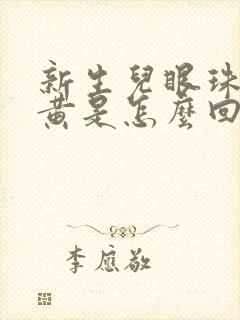 新生兒眼珠
黃是怎麼回
李應敬